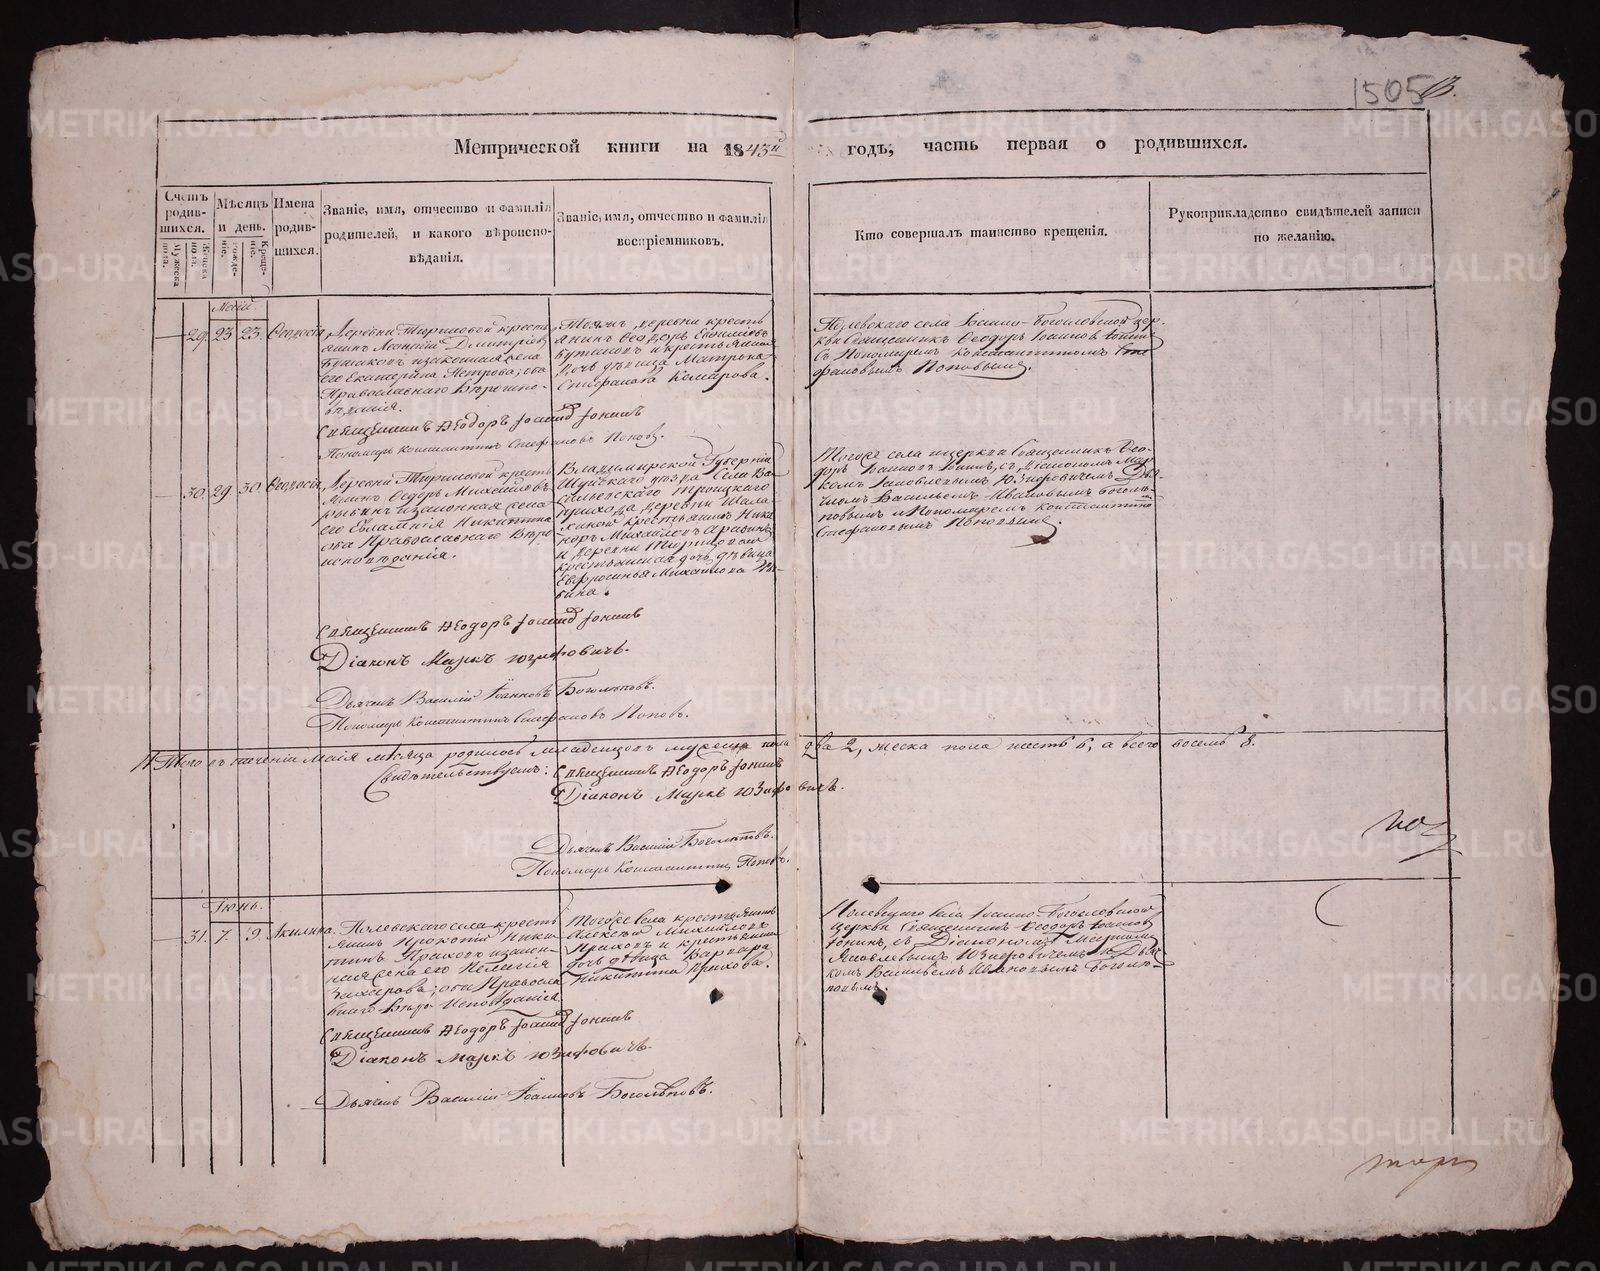 1505
13.
Метрической книги на 1843й годъ, часть первая о родившихся.
Счетъ родив-шихся.
Мужеска пола.
Женска пола.
Мѣсяцъ и день.
Рожде-нія.
Креще-нія.
Имена родив-шихся.
Званіе, имя, отчество и фамилія
родителей, и какого вѣроиспо-
вѣданія.
Званіе, имя, отчество и фамилія
воспріемниковъ.
Кто совершалъ таинство крещенія.
Рукоприкладство свидѣтелей записи
по желанію.
Маій
29. 23 23. Ѳеодосія
Деревни кресть
янинъ Леонтій Димитріевъ
законная жена
его Екатерина Петрова; оба
Православнаго Вѣроиспо-
вѣданія.
деревни кресть
янинъ Ѳеодоръ
и крестьянина
дочь дѣвица Матрона
Стефанова Комарова.
Полевскаго села Іоанно-Богословской цер-
кви Священникъ Ѳеодоръ Іоанновъ Іонинъ
съ Пономаремъ Константиномъ Сте
фановымъ Поповымъ.
Священникъ Ѳеодоръ Іонинъ
Пономарь Константинъ Стефановъ Поповъ.
30. 29 30 Ѳеодосія
Деревни кресть
янинъ Ѳедоръ Михайловъ
законная жена
его Евлампія Никитина
оба Православнаго Вѣро
исповѣданія.
Владимирской Губерніи
Шуйскаго уѣзда Села Ва
сильевскаго Троицкаго
прихода деревни
крестьянинъ Ника
норъ Михайловъ
и деревни
крестьянская дочь дѣвица
Евфросинья Михайлова
Тогоже села и церкви Священникъ Ѳео-
доръ Іоанновъ Іонинъ, съ Діакономъ Мар
комъ Іаковлевымъ Юзефовичемъ Дья
чкомъ Васильемъ Ивановымъ Боголѣ
повымъ и Пономаремъ Константино
Стефановымъ Поповымъ.
Священникъ Ѳеодоръ Іонинъ
Діаконъ Маркъ Юзефовичъ.
Дьячекъ Василій Іоанновъ Боголѣповъ.
Пономарь Константинъ Стефановъ Поповъ.
Итого въ теченіи Маія мѣсяца родилось младенцовъ мужеска пола два 2, женска пола шесть 6, а всего восемь 8.
Свидѣтельствуемъ: Священникъ Ѳеодоръ Іонинъ
Діаконъ Маркъ Юзефовичъ.
Дьячекъ Василій Боголѣповъ.
Пономарь Константинъ Поповъ.
Іюнь.
31. 7. 9. Акилина.
Полевскаго села кресть
янинъ Прокопій Ники
тинъ Пряховъ и закон-
ная жена его Пелагія
Захарова; оба Православ
наго Вѣро-Исповѣданія
Тогоже Села крестьянинъ
Алексѣй Михайловъ
Пряховъ и крестьянина
дочь дѣвица Варвара
Никитина Пряхова.
Полевскаго села Іоанно-Богословской
Церкви Священникъ Ѳеодоръ Іоанновъ
Іонинъ, съ Діакономъ Маркомъ
Яковлевымъ Юзефовичемъ и Дьяч
комъ Васильемъ Ивановымъ Боголѣ-
повымъ.
Священникъ Ѳеодоръ Іонинъ
Діаконъ Маркъ Юзефовичъ.
Дьячекъ Василій Іоанновъ Боголѣповъ.
METRIKI.GASO-URAL.RU